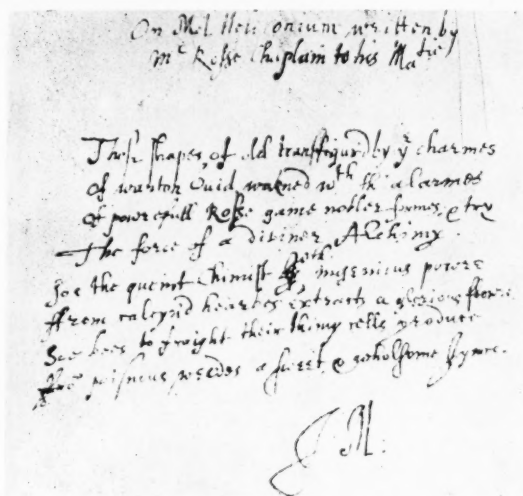 On Mel Heliconium written by
Mr Rosse Chaplain to his Matie
Those shapes, of old transfigurd by ye charmes
Of wanton Ouid, wakned wth th'alarmes
Of powerfull Rosse gaine nobler formes, & try
The force of a diuiner Alchimy.
Soe the queint Chimist with ingenious powre
ffrom calcynd hearbes extracts a glorious flowre
Soe bees to fraight their thimy cells produce
ffrom poisnous weedes a sweet & wholsome iyuce.
J M.